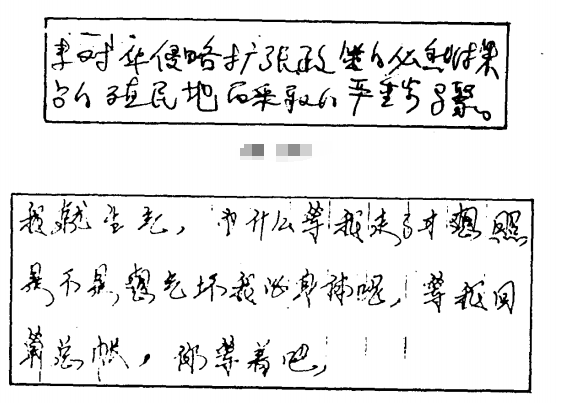 对华侵略扩张政策的必然结果
的殖民地而采取的严重步骤。
我就生气，为什么等我走了才想照
是不是想气坏我的身体呢，等我回
算总帐，你等着吧，